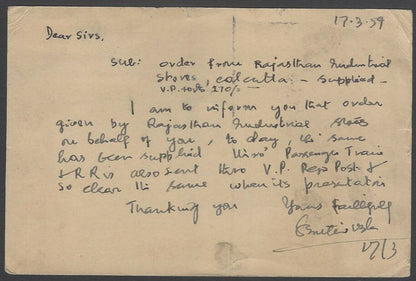 17-3-59
Dear Sirs,
Sub: order from Rajasthan Industrial
Stores, Calcutta :- Supplied -
V.P. 270/-
I am to inform you that order
given by Rajasthan Industrial Stores
on behalf of you, to day, the same
has been supplied thro' Passenger Train
& RR is also sent thro V.P. Regd Post &
So clear the same when its presentation
Thanking you Yours faithfully
17/3